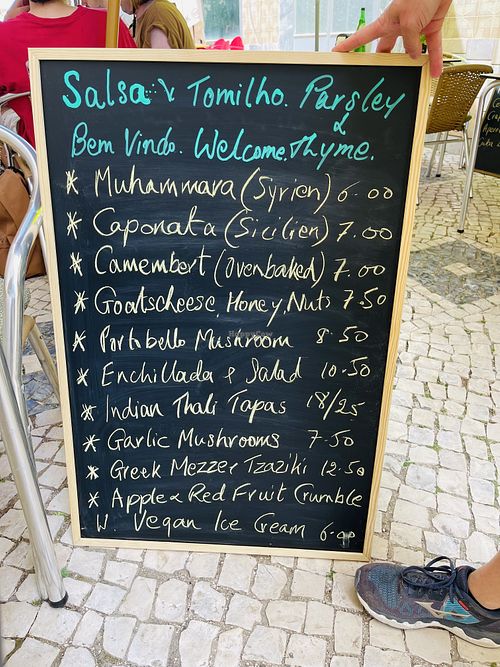 Salsa & Tomilho. Parsley
&
Bem Vindo. Welcome. Thyme.
* Muhammara (Syrien) 6.00
* Caponata (Sicilien) 7.00
* Camembert (ovenbaked) 7.00
* Goatscheese, Honey, Nuts 7.50
* Portobello Mushroom 8.50
* Enchillada & Salad 10.50
* Indian Thali Tapas 18/25
* Garlic Mushrooms 7.50
* Greek Mezze & Tzaziki 12.50
* Apple & Red Fruit Crumble
W. Vegan Ice Cream 6.00
HappyCow